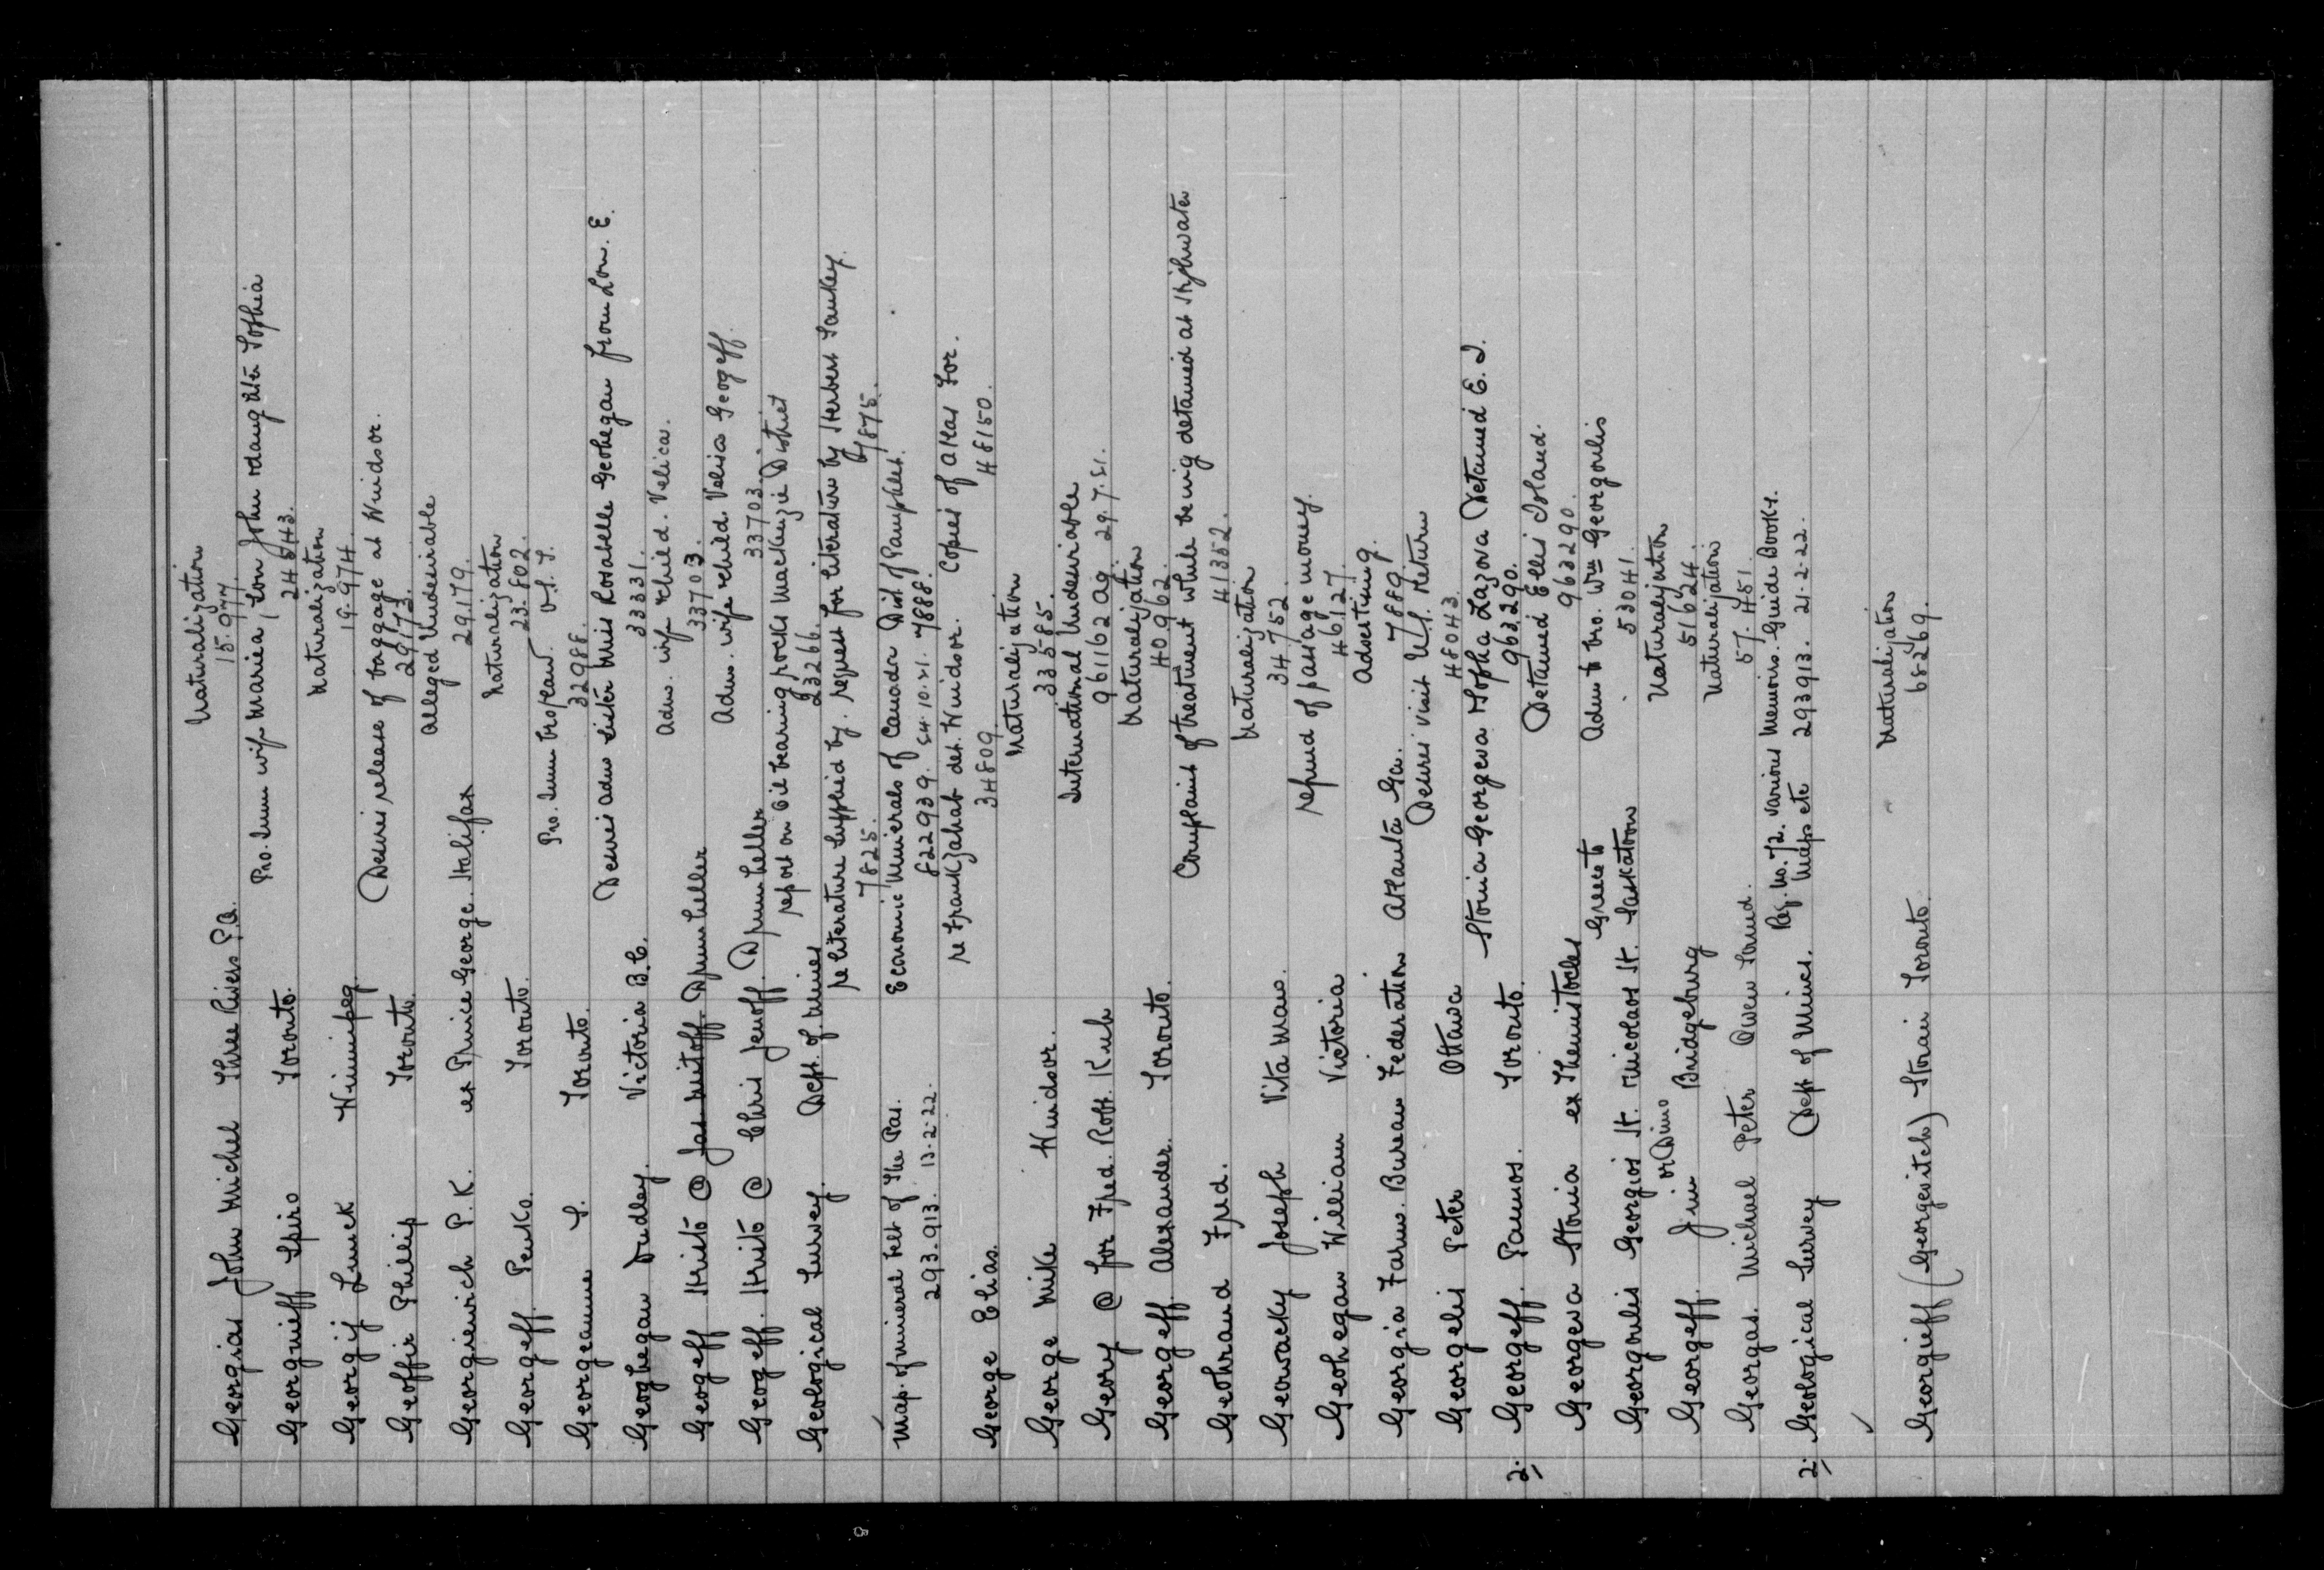 Georgias John Michel Three Rivers P.Q. Naturalization
15.977.
Georguieff Spiro Toronto. Pro. Imm wife Mariea, Son John & daughter Sophia
24543.
Georgij Lumek Winnipeg. Naturalization
19.974.
Geoffir Phillip Toronto. Desires release of baggage at Windsor.
29173.
Georgievich P. K. ex Prince George. Halifax Alleged Undesirable
29.179.
Georgeff. Penko. Toronto. Naturalization
23.802.
Georgeanne S. Toronto. Pro. Imm
32988.
Geoghegan Dudley. Victoria B.C. Desires adm sister Miss Rosabelle Geohegan from Lon. E.
33331.
Geogeff Hristo @ Jas Mitoff Drumheller Adm. wife & child. Velica.
33703.
Geogeff. Hristo @ Chris Jenoff. Drumheller Adm. wife & child Velica Geogeff.
33703.
Geological Survey. Dept. of Mines report on Oil bearing rocks Mackenzie District
23266.
re literature supplied by. request for literature by Herbert Sankey.
7825. 7875.
Map. of mineral belt of The Pas. Economic Minerals of Canada Dist of Pamphlet.
293.913. 13-2-22 822939. 24.10.21. 7888.
George Elias. re Frank Zahab det. Windsor. Copies of Atlas for.
34809. 48150.
George Mike Windsor. Naturalization
33585.
Geory @ for Fred. Robt. Kuch International Undesirable
961162 Ag. 29.7.21.
Georgeff. Alexander. Toronto. Naturalization
40962.
Geohrand Fred. Complaint of treatment while being detained at Highwater
41352.
Gewacky Joseph Vita Man. Naturalization
34752.
Geohegan William Victoria refund of passage money.
46127.
Georgia Farm. Bureau Federation Atlanta Ga. Advertising.
7889.
Georgelis Peter Ottawa Desires visit U.S. & return
48043.
2. Georgeff. Pannos. Toronto. Stonia Georgeva & Sopha Lazova Detained E. I.
963290.
Georgeva Stonia ex Themistocles Detained Ellis Island.
963290.
Georgoulis Georgios St. Nicolaos St. Greece to Saskatoon Adm to bro. Wm Georgoulis
53041.
Georgeff. Jim or Dimo Bridgeburg Naturalization
51624.
Georgas. Michael Peter Owen Sound. Naturalization
57.451.
2. Geological Survey Dept of Mines. Reg. No. 72. various Memoirs. Guide Books.
Maps etc 293913. 21-2-22.
Georgieff (Georgevitch) Stoian Toronto. Naturalization
68269.